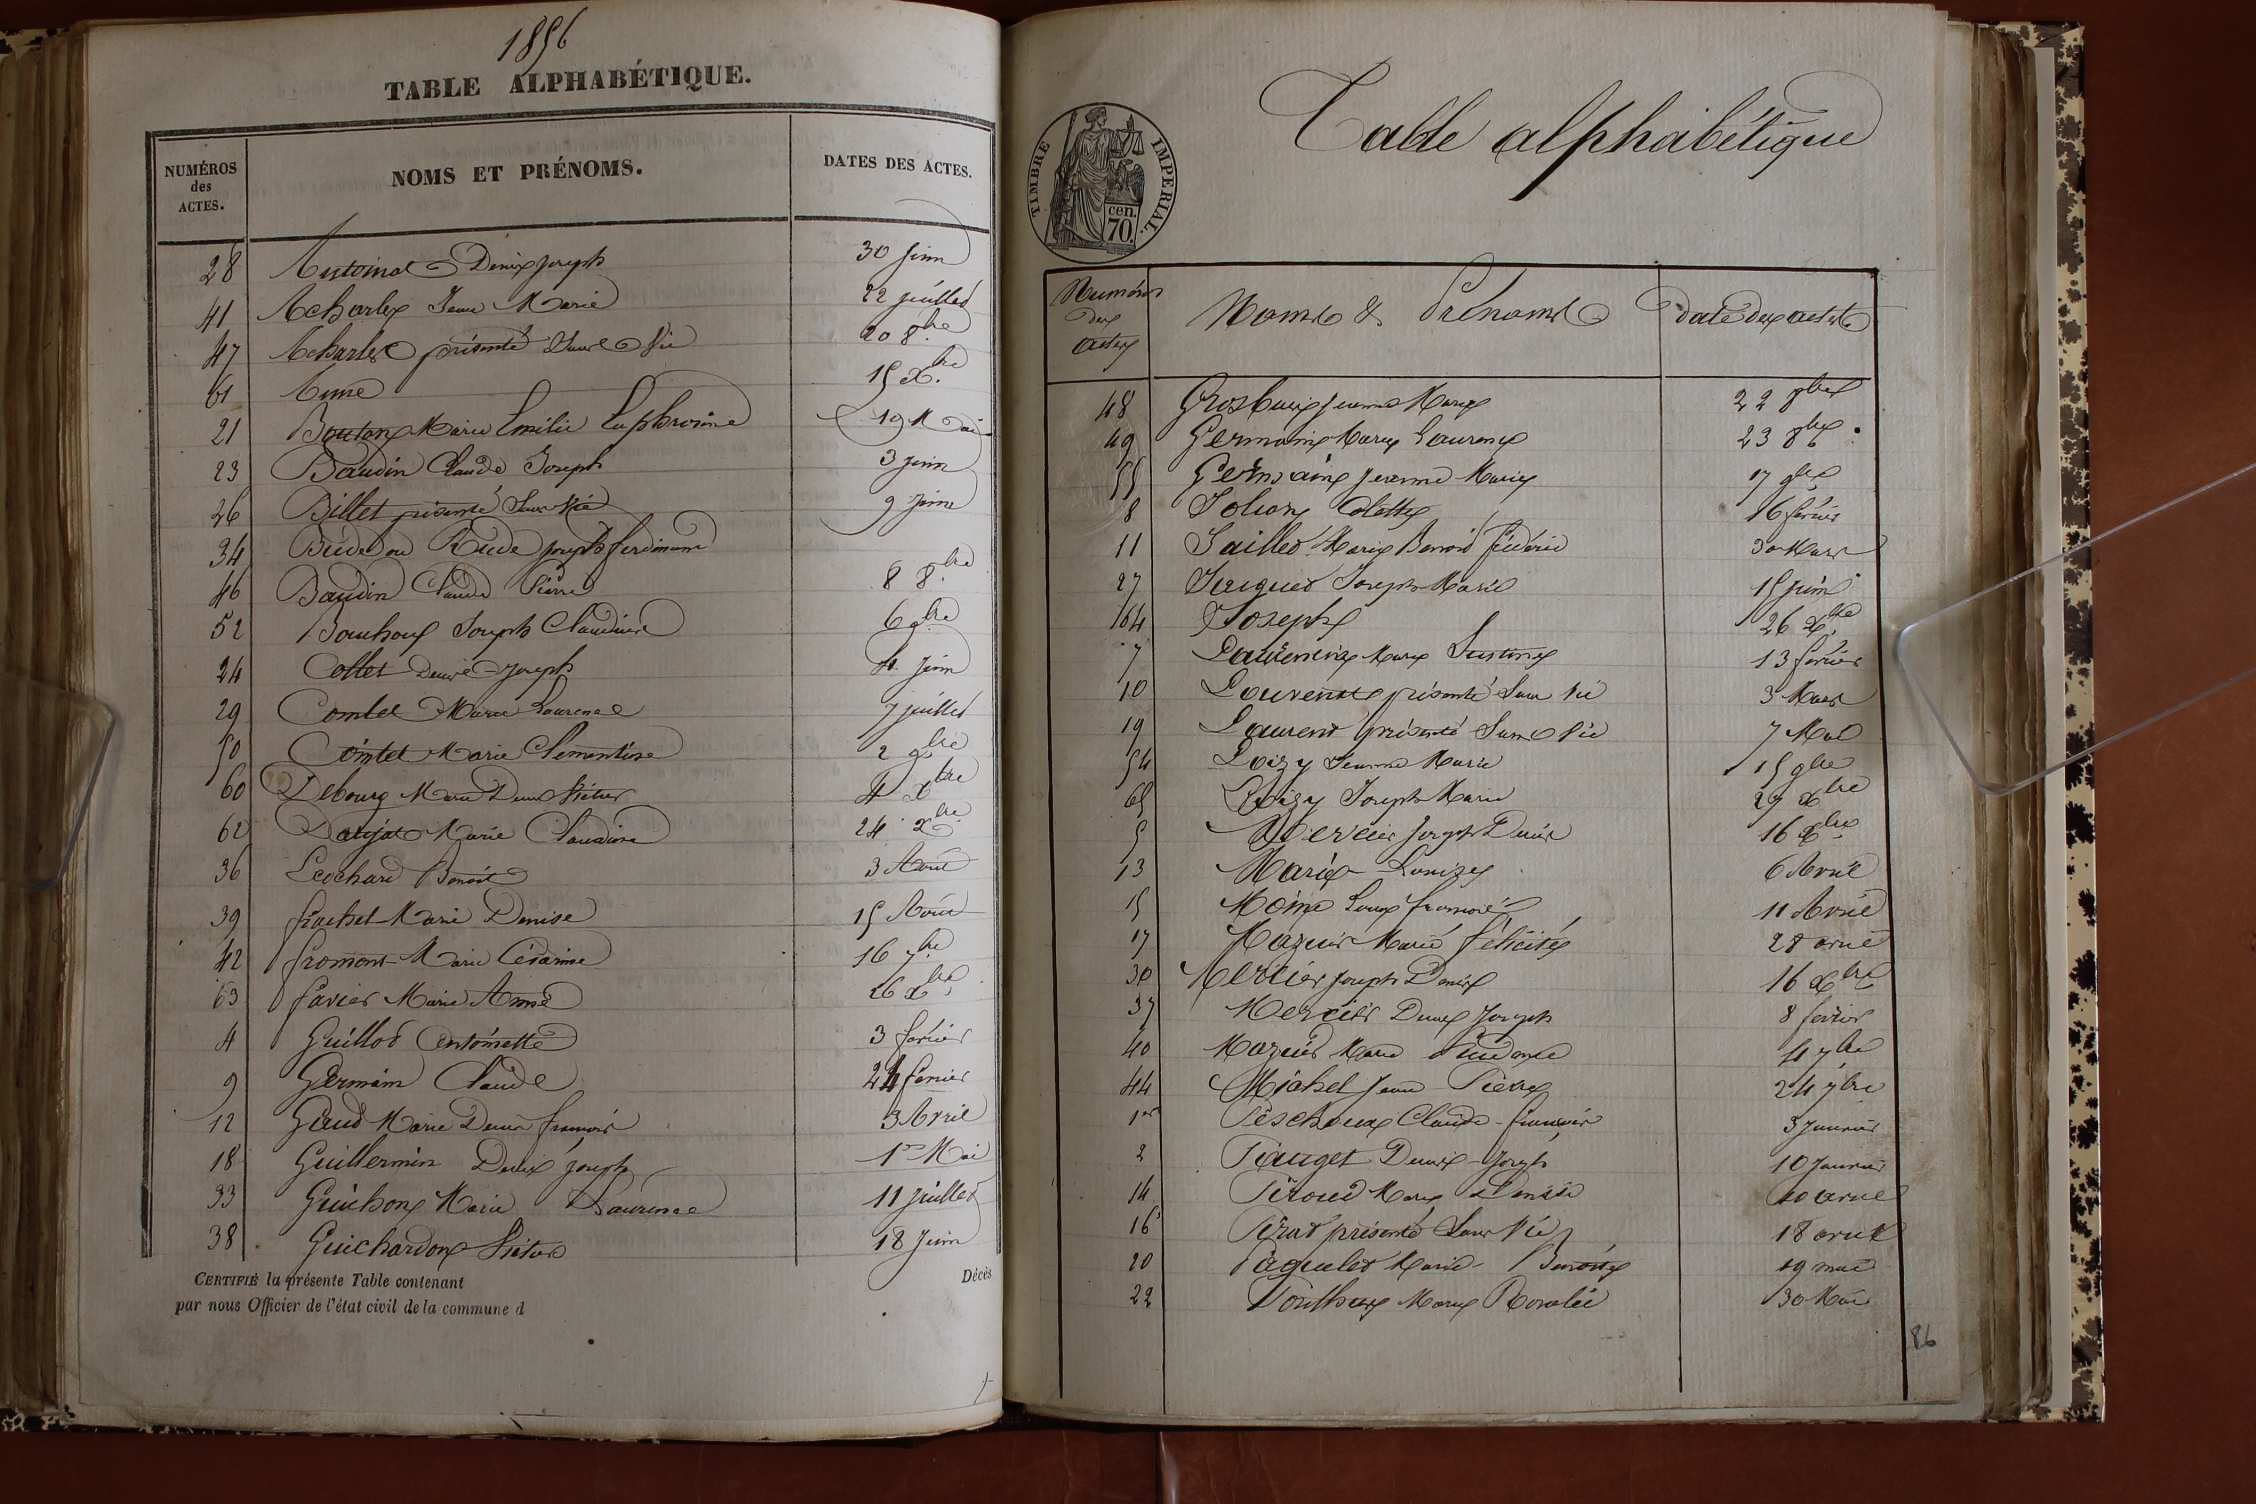 1856
TABLE ALPHABÉTIQUE.
NUMÉROS des ACTES. NOMS ET PRÉNOMS. DATES DES ACTES.
28 Denis joseph 30 juin
41 Acharles Jean Marie 22 juillet
47 Acharles présenté Sans Vie 20 8bre
61 Aimé 15 Xbre
21 Bouton Marie Emilie Euphrosine 19 Mai
23 Baudin Claude Joseph 3 juin
26 Billet présenté Sans Vie 9 juin
34 Bride ou Ride joseph ferdinand
46 Baudin Claude Pierre 8 8bre
52 Bouhoux Joseph Claudius 6 9bre
24 Collet Denis Joseph 4 juin
29 Comtet Marie Laurence 7 juillet
50 Comtet Marie Clementine 2 9bre
60 Debourg Marie Denis Victor 4 Xbre
62 Danjat Marie Claudine 24 Xbre
36 Ecochard Benoit 3 Août
39 frachet Marie Denise 15 Août
42 fromont Marie Césarine 16 7bre
63 favier Marie Anne 26 Xbre
4 Guillot Antoinette 3 fevrier
9 Germain Claude 24 fevrier
12 Gaud Marie Denis francois 3 Avril
18 Guillermin Denis joseph 1er Mai
33 Guichon Marie Laurence 11 juillet
38 Guichardon Victor 18 Juin
CERTIFIÉ la présente Table contenant Décès
par nous Officier de l'état civil de la commune d
Table alphabétique
TIMBRE IMPERIAL.
70 cen.
Numéros des actes Noms & Prénoms Date des actes
48 Grosbuis jeanne Marie 22 8bre
49 Germain Marie Laurence 23 8bre
55 Germain jeanne Marie 17 9bre
8 Jolion Colette 16 fevrier
11 Jaillet Marie Benoit fréderic 30 Mars
27 Jacquet Joseph Marie 15 juin
164 Joseph 26 Xbre
7 Marie Justine 13 fevrier
10 Louvenat présenté Sans Vie 3 Mars
19 Laurent présenté Sans Vie 7 Mai
54 Loizy Jeanne Marie 15 9bre
65 Loizy Joseph Marie 29 Xbre
5 Mercier Joseph Denis 16 Xbre
13 Marie Louise 6 Avril
15 Moine Louis francois 11 Avril
17 Mazuir Marie félicité 28 avril
30 Mercier joseph Denis 16 Xbre
37 Mercier Denis Joseph 8 fevrier
40 Mazuir Marie 4 7bre
44 Michel Jean Pierre 24 7bre
1er Peschoux Claude francois 3 Janvier
2 Pauget Denis Joseph 10 Janvier
14 Péroud Marie Denise 10 avril
16 Pérat présenté Sans Vie 18 avril
20 Paquelet Marie Benoite 19 mai
22 Ponthus Marie Rosalie 30 Mai
86